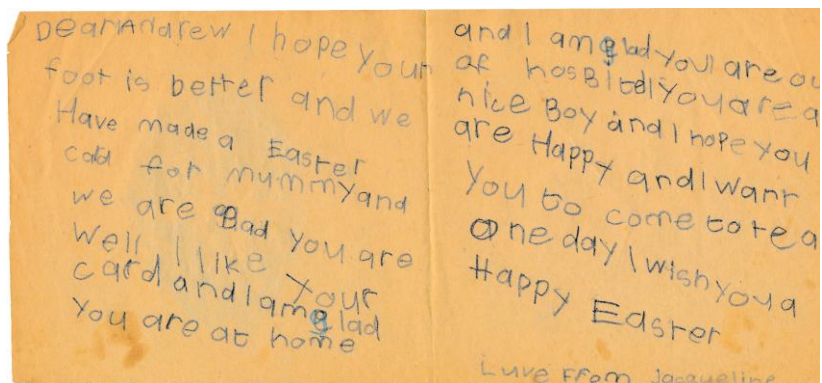 Dear Andrew I hope your
foot is better and we
Have made a Easter
cad for mummy and
we are glad you are
Well I like your
card and I am glad
You are at home
and I am glad you are ou
of hosbital you are a
nice Boy and I hope you
are Happy and I want
You to come to tea
one day I wish you a
Happy Easter
Luve From Jacqueline